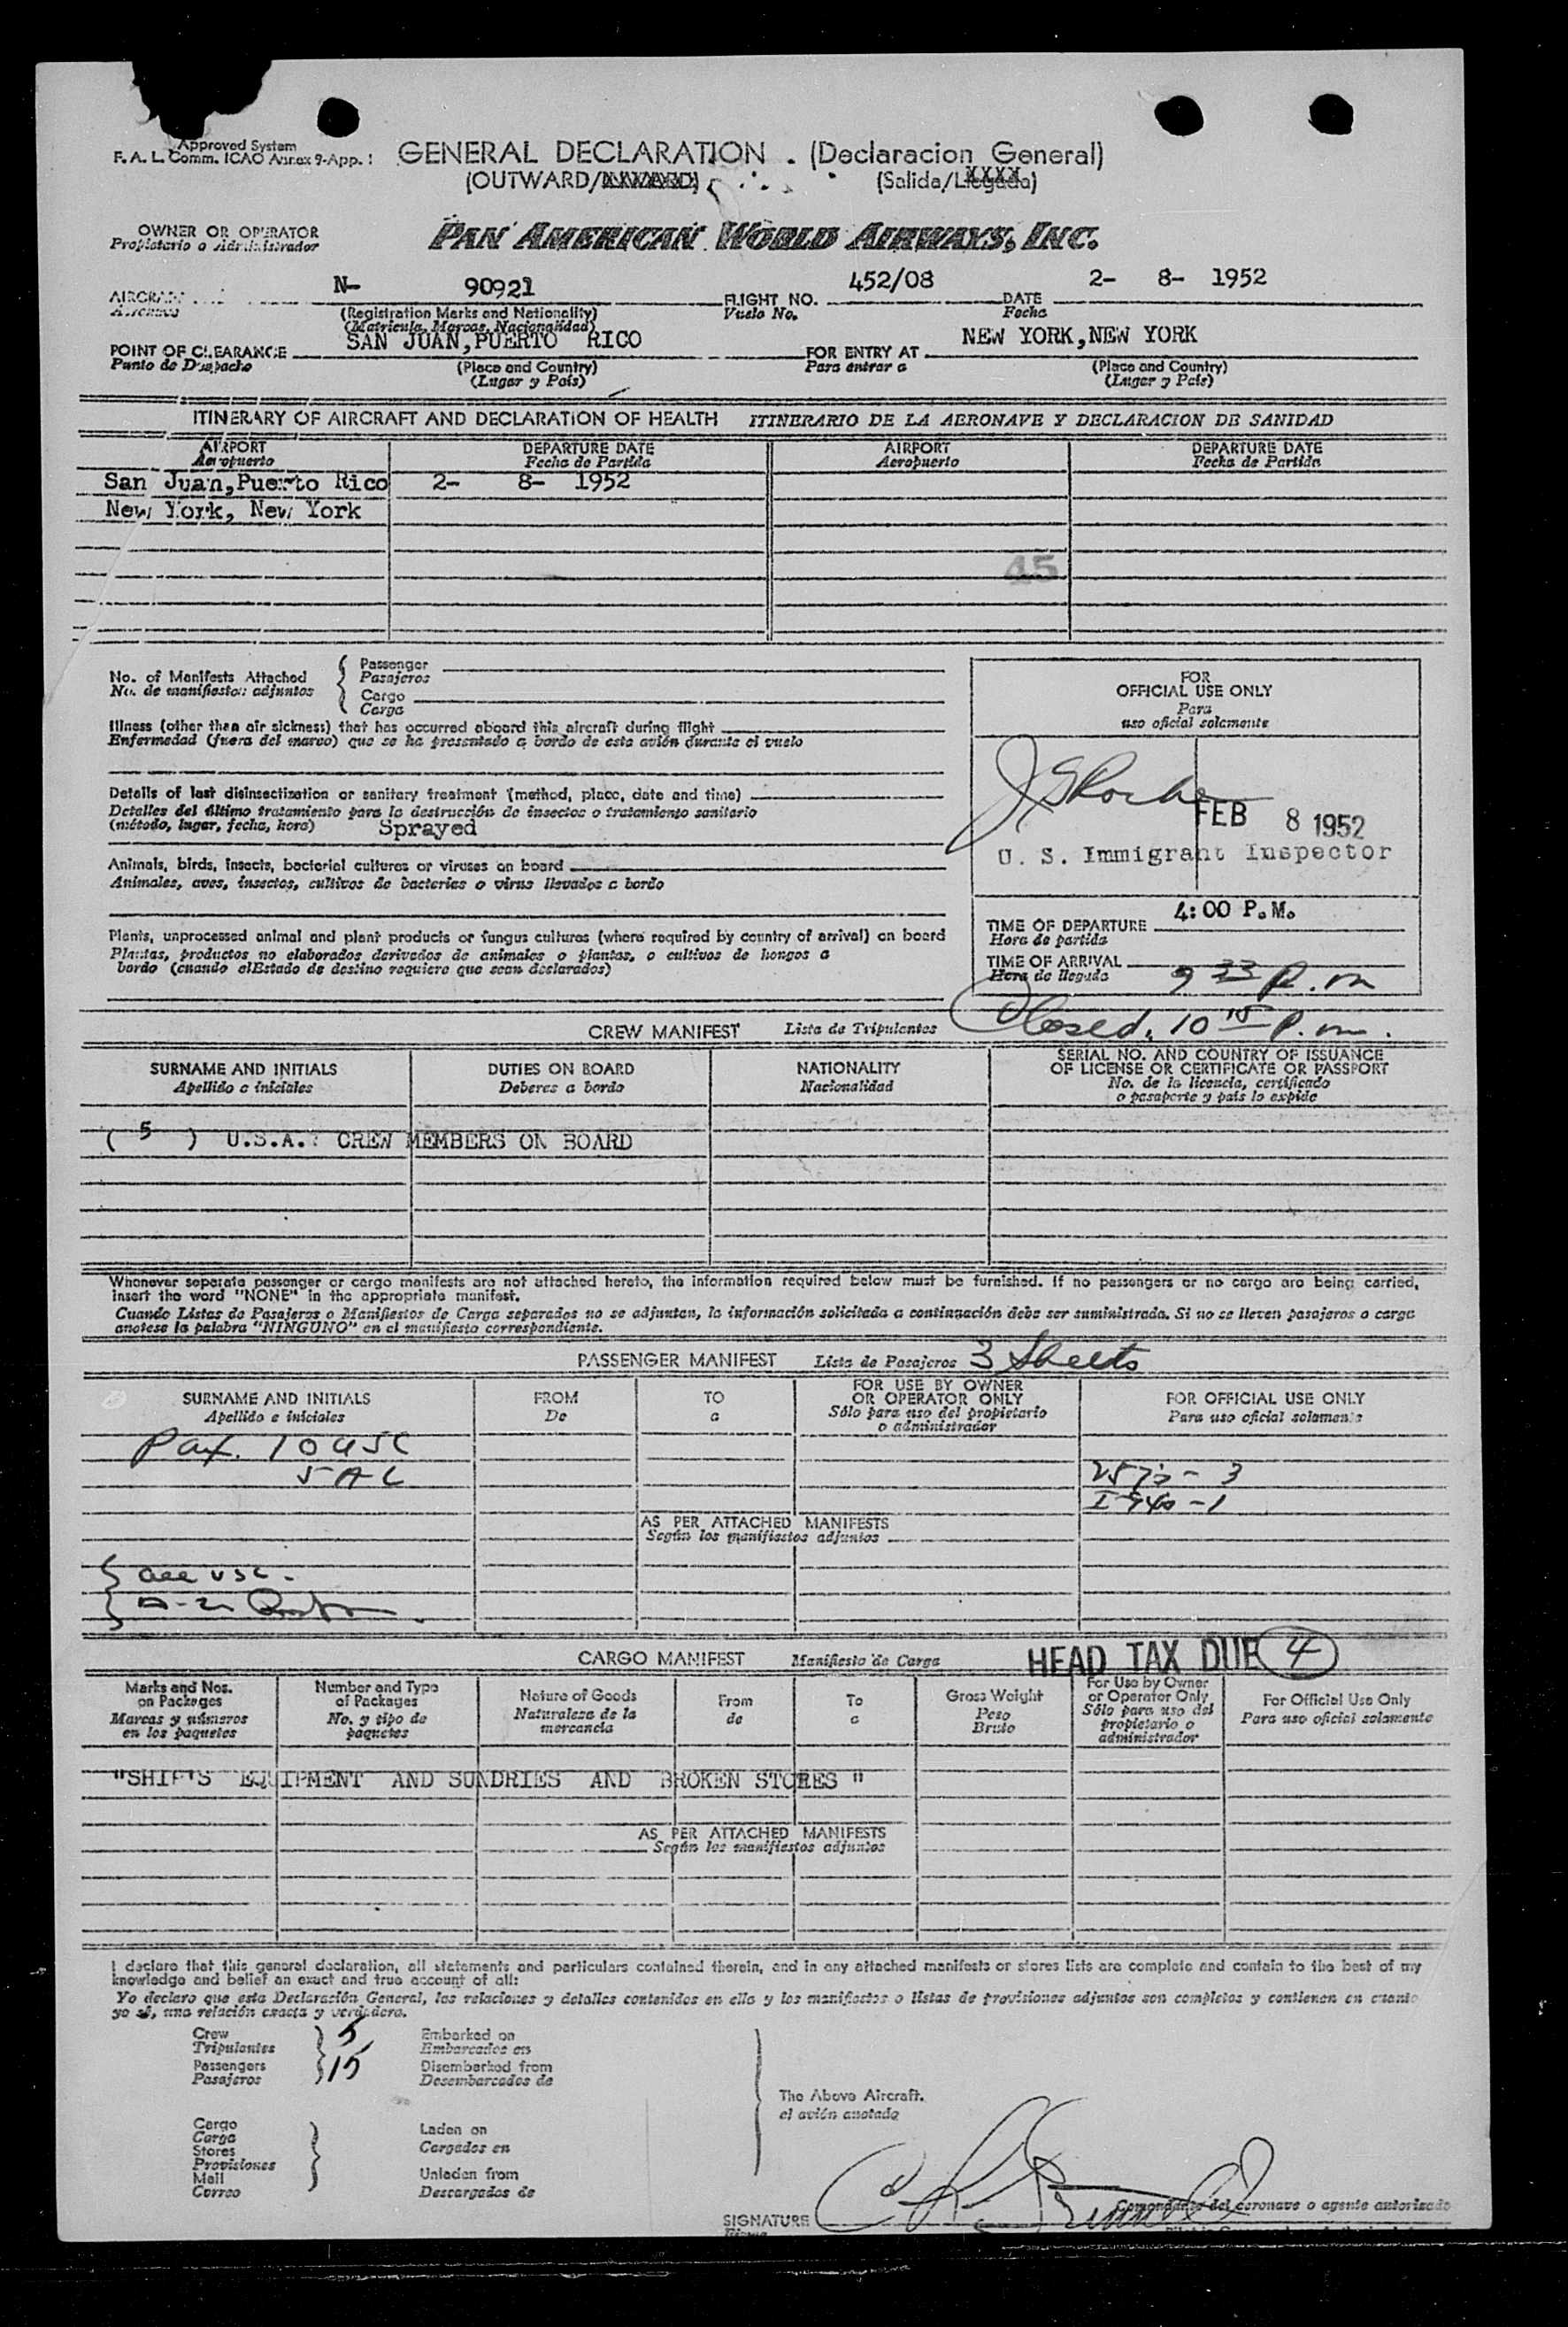 Approved System
F. A. L. Comm. ICAO Annex 9-App. 1
GENERAL DECLARATION . (Declaracion General)
(OUTWARD/XXXXXXX) (Salida/Llegada)
XXXX
OWNER OR OPERATOR
Propietario o Administrador
PAN AMERICAN WORLD AIRWAYS, INC.
AIRCRAFT N- 90921 FLIGHT NO. 452/08 DATE 2- 8- 1952
Vuelo No. Fecha
(Registration Marks and Nationality)
(Matricula, Marcas, Nacionalidad)
POINT OF CLEARANCE SAN JUAN,PUERTO RICO FOR ENTRY AT NEW YORK,NEW YORK
Punto de Despacho (Place and Country) Para entrar a (Place and Country)
(Lugar y País) (Lugar y País)
ITINERARY OF AIRCRAFT AND DECLARATION OF HEALTH ITINERARIO DE LA AERONAVE Y DECLARACION DE SANIDAD
AIRPORT DEPARTURE DATE AIRPORT DEPARTURE DATE
Aeropuerto Fecha de Partida Aeropuerto Fecha de Partida
San Juan,Puerto Rico 2- 8- 1952
New York, New York
45
No. of Manifests Attached
No. de manifiestos adjuntos
Passenger
Pasajeros
Cargo
Carga
Illness (other than air sickness) that has occurred aboard this aircraft during flight
Enfermedad (fuera del mareo) que se ha presentado a bordo de este avión durante el vuelo
Details of last disinsectization or sanitary treatment (method, place, date and time)
Detalles del último tratamiento para la destrucción de insectos o tratamiento sanitario
(método, lugar, fecha, hora) Sprayed
Animals, birds, insects, bacterial cultures or viruses on board
Animales, aves, insectos, cultivos de bacterias o virus llevados a bordo
Plants, unprocessed animal and plant products or fungus cultures (where required by country of arrival) on board
Plantas, productos no elaborados derivados de animales o plantas, o cultivos de hongos a
bordo (cuando elEstado de destino requiere que sean declarados)
FOR
OFFICIAL USE ONLY
Para
uso oficial solamente
FEB 8 1952
U. S. Immigrant Inspector
TIME OF DEPARTURE 4:00 P.M.
Hora de partida
TIME OF ARRIVAL
Hora de llegada 9 33 P.m
Closed, 10 15 P.m.
CREW MANIFEST Lista de Tripulantes
SURNAME AND INITIALS DUTIES ON BOARD NATIONALITY SERIAL NO. AND COUNTRY OF ISSUANCE
OF LICENSE OR CERTIFICATE OR PASSPORT
Apellido e iniciales Deberes a bordo Nacionalidad No. de la licencia, certificado
o pasaporte y país lo expide
( 5 ) U.S.A. CREW MEMBERS ON BOARD
Whenever separate passenger or cargo manifests are not attached hereto, the information required below must be furnished. If no passengers or no cargo are being carried,
insert the word "NONE" in the appropriate manifest.
Cuando Listas de Pasajeros o Manifiestos de Carga separados no se adjuntan, la información solicitada a continuación debe ser suministrada. Si no se lleven pasajeros o carga
anotese la palabra "NINGUNO" en el manifiesto correspondiente.
PASSENGER MANIFEST Lista de Pasajeros 3 Sheets
SURNAME AND INITIALS FROM TO FOR USE BY OWNER
OR OPERATOR ONLY FOR OFFICIAL USE ONLY
Apellido e iniciales De a Sólo para uso del propietario
o administrador Para uso oficial solamente
Pax. 10 USC
5 AL
- 3
- 1
AS PER ATTACHED MANIFESTS
Según los manifiestos adjuntos
all USC.
HEAD TAX DUE 4
CARGO MANIFEST Manifiesto de Carga
Marks and Nos.
on Packages
Marcas y números
en los paquetes
Number and Type
of Packages
No. y tipo de
paquetes
Nature of Goods
Naturaleza de la
mercancía
From
de
To
a
Gross Weight
Peso
Bruto
For Use by Owner
or Operator Only
Sólo para uso del
propietario o
administrador
For Official Use Only
Para uso oficial solamente
"SHIP'S EQUIPMENT AND SUNDRIES AND BROKEN STORES "
AS PER ATTACHED MANIFESTS
Según los manifiestos adjuntos
I declare that this general declaration, all statements and particulars contained therein, and in any attached manifests or stores lists are complete and contain to the best of my
knowledge and belief an exact and true account of all:
Yo declaro que esta Declaración General, las relaciones y detalles contenidos en ella y los manifiestos o listas de provisiones adjuntos son completos y contienen en cuanto
yo sé, una relación exacta y verdadera.
Crew 5
Tripulantes
Passengers 15
Pasajeros
Embarked on
Embarcados en
Disembarked from
Desembarcados de
The Above Aircraft.
el avión anotado
Cargo
Carga
Stores
Provisiones
Mail
Correo
Laden on
Cargados en
Unladen from
Descargados de
SIGNATURE
Firma
Comandante del aeronave o agente autorizado